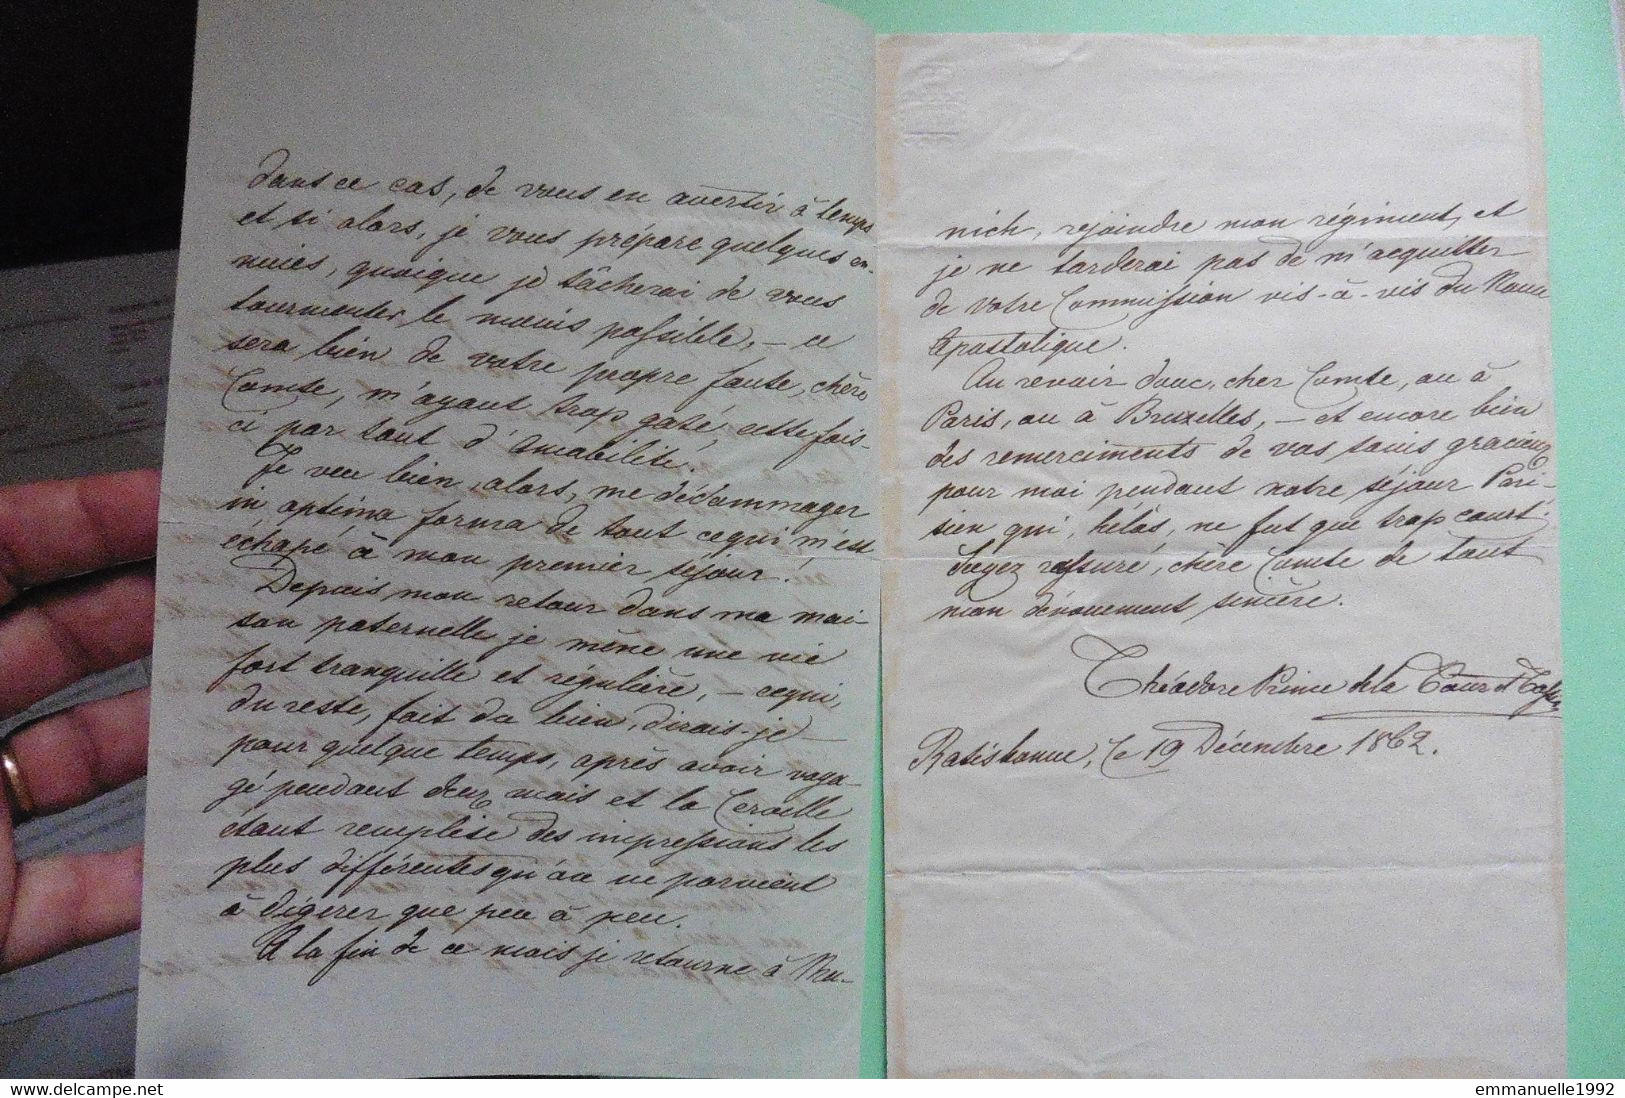 dans ce cas, de vous en avertir à temps
et si alors, je vous prépare quelques en-
nuies, quoique je tâcherai de vous
tourmenter le moins possible, – ce
sera bien de votre propre faute, chèr
Comte, m'ayant trop gaté, cette fois-
ci par tout d'amabilité.
Je veu bien, alors, me dédommager
in optima forma de tout cequi m'est
échapé à mon premier séjour!
Depuis mon retour dans ma mai-
son paternelle je mène une vie
fort tranquille et régulière, – cequi,
du reste, fait du bien, dirais-je
pour quelque temps, après avoir vaga-
gé pendant deux mois et la Cervelle
étant remplise des impressions les
plus différentes qu'on ne parvient
à digerer que peu à peu.
A la fin de ce mois je retourne à Mu-
nich, rejoindre mon régiment, et
je ne tarderai pas de m'acquitter
de votre Commission vis-à-vis du Nonce
Apostolique.
Au revoir donc, cher Comte, ou à
Paris, ou à Bruxelles, – et encore bien
des remerciments de vos soins gracieux
pour moi pendant notre séjour Pari-
sien qui, hélàs, ne fut que trop court.
Soyez rassuré, chère Comte de tout
mon dévouement sincère.
Théodore Prince de la Tour et Taxis
Ratisbonne, le 19 Décembre 1862.
delcampe.net
emmanuelle1992